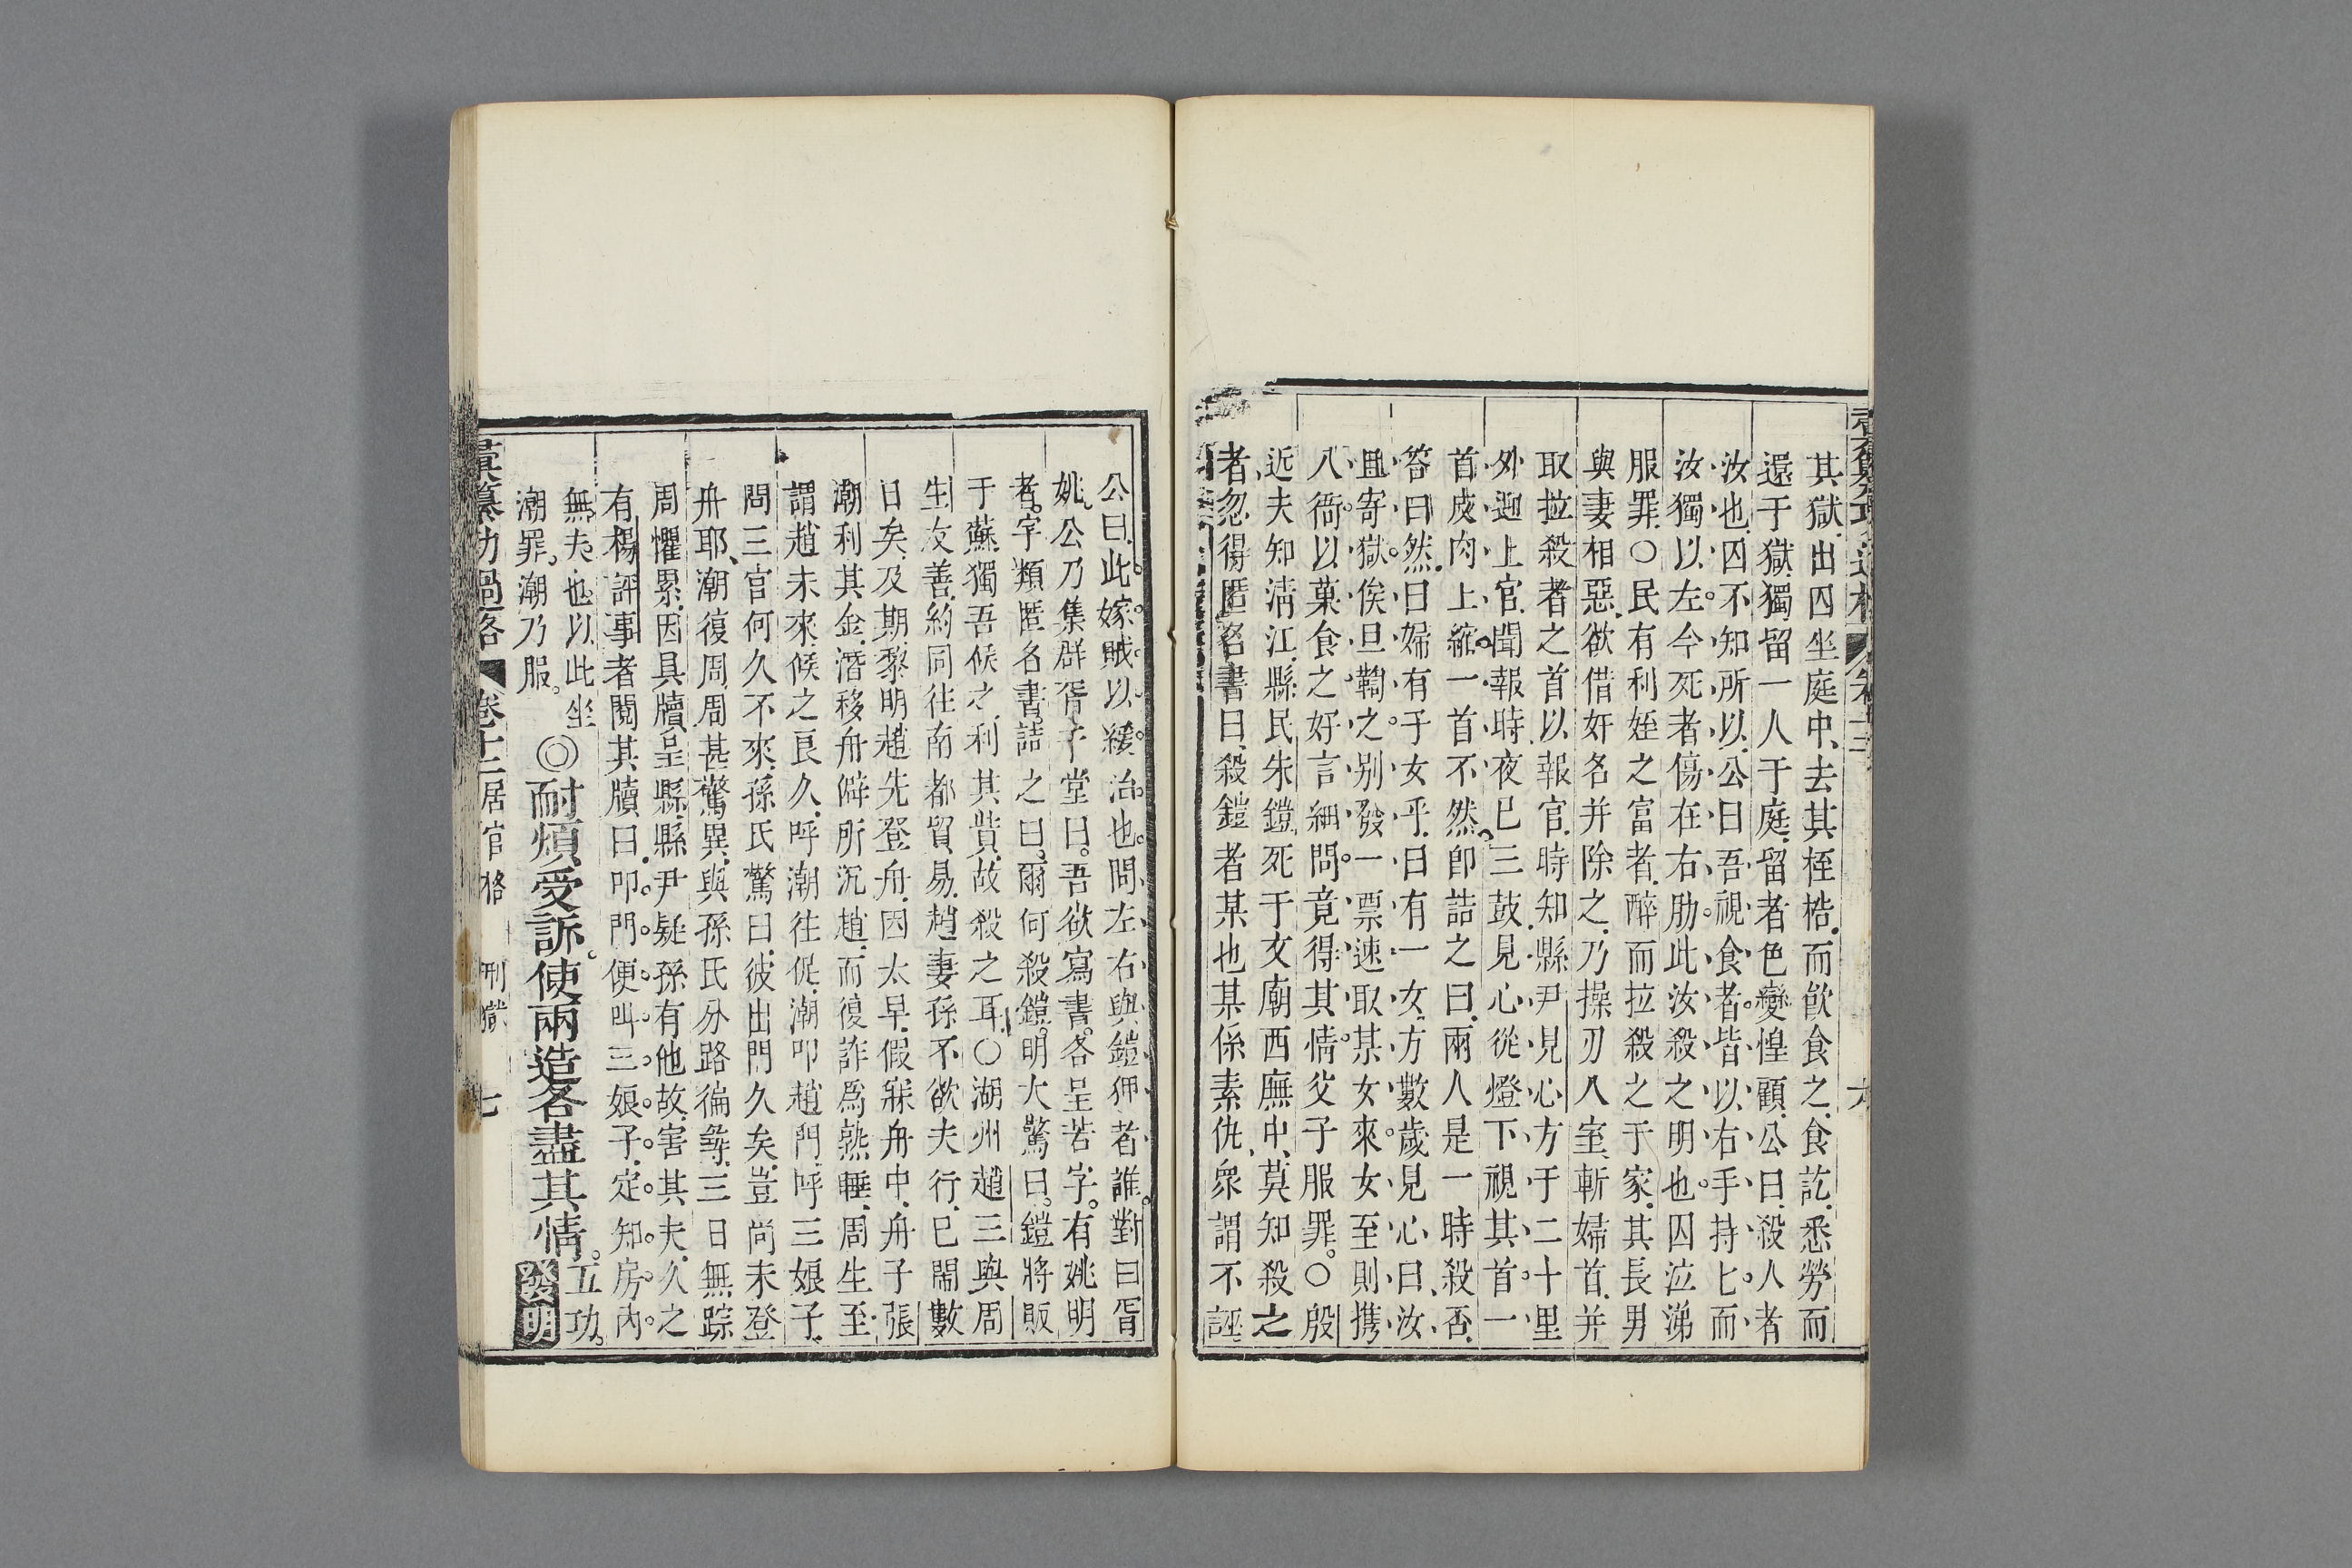 其獄出囚坐庭中去其桎梏而飮食之食訖悉勞而
還于獄獨留一人于庭留者色變惶顧公曰殺人者
汝也囚不知所以公曰吾視食者皆以右手持匕而
汝獨以左今死者傷在右肋此汝殺之明也囚泣涕
服罪〇民有利姪之富者醉而拉殺之于家其長男
與妻相惡欲借奸名并除之乃操刃入室斬婦首并
取拉殺者之首以報官時知縣尹見心方于二十里
外迎上官聞報時夜已三鼓見心從燈下視其首一
首皮肉上縮一首不然卽詰之曰兩人是一時殺否
答曰然曰婦有子女乎曰有一女方數歲見心曰汝
且寄獄俟旦鞫之别發一票速取某女來女至則携
入衙以菓食之好言細問竟得其情父子服罪〇殷
近夫知淸江縣民朱鎧死于文廟西廡中莫知殺之
者忽得匿名書曰殺鎧者某也某係素仇衆謂不誣
公曰此嫁賊以緩治也問左右與鎧狎者誰對曰胥
姚公乃集群胥于堂曰吾欲寫書各呈若字有姚明
者字類匿名書詰之曰爾何殺鎧明大驚曰鎧將販
于蘇獨吾候之利其貲故殺之耳〇湖州趙三與周
生友善約同往南都貿易趙妻孫不欲夫行已閙數
日矣及期黎明趙先登舟因太早假寐舟中舟子張
潮利其金潛移舟僻所沉趙而復詐爲熟睡周生至
謂趙未來候之良久呼潮往促潮叩趙門呼三娘子
問三官何久不來孫氏驚曰彼出門久矣豈尚未登
舟耶潮復周周甚驚異與孫氏分路徧尋三日無踪
周懼累因具牘呈縣縣尹疑孫有他故害其夫久之
有楊評事者閱其牘曰叩門便叫三娘子定知房內
無夫也以此坐
潮罪潮乃服
◎耐煩受訴使兩造各盡其情五功發明
彙纂功過格 卷十二居官格 刑獄 七